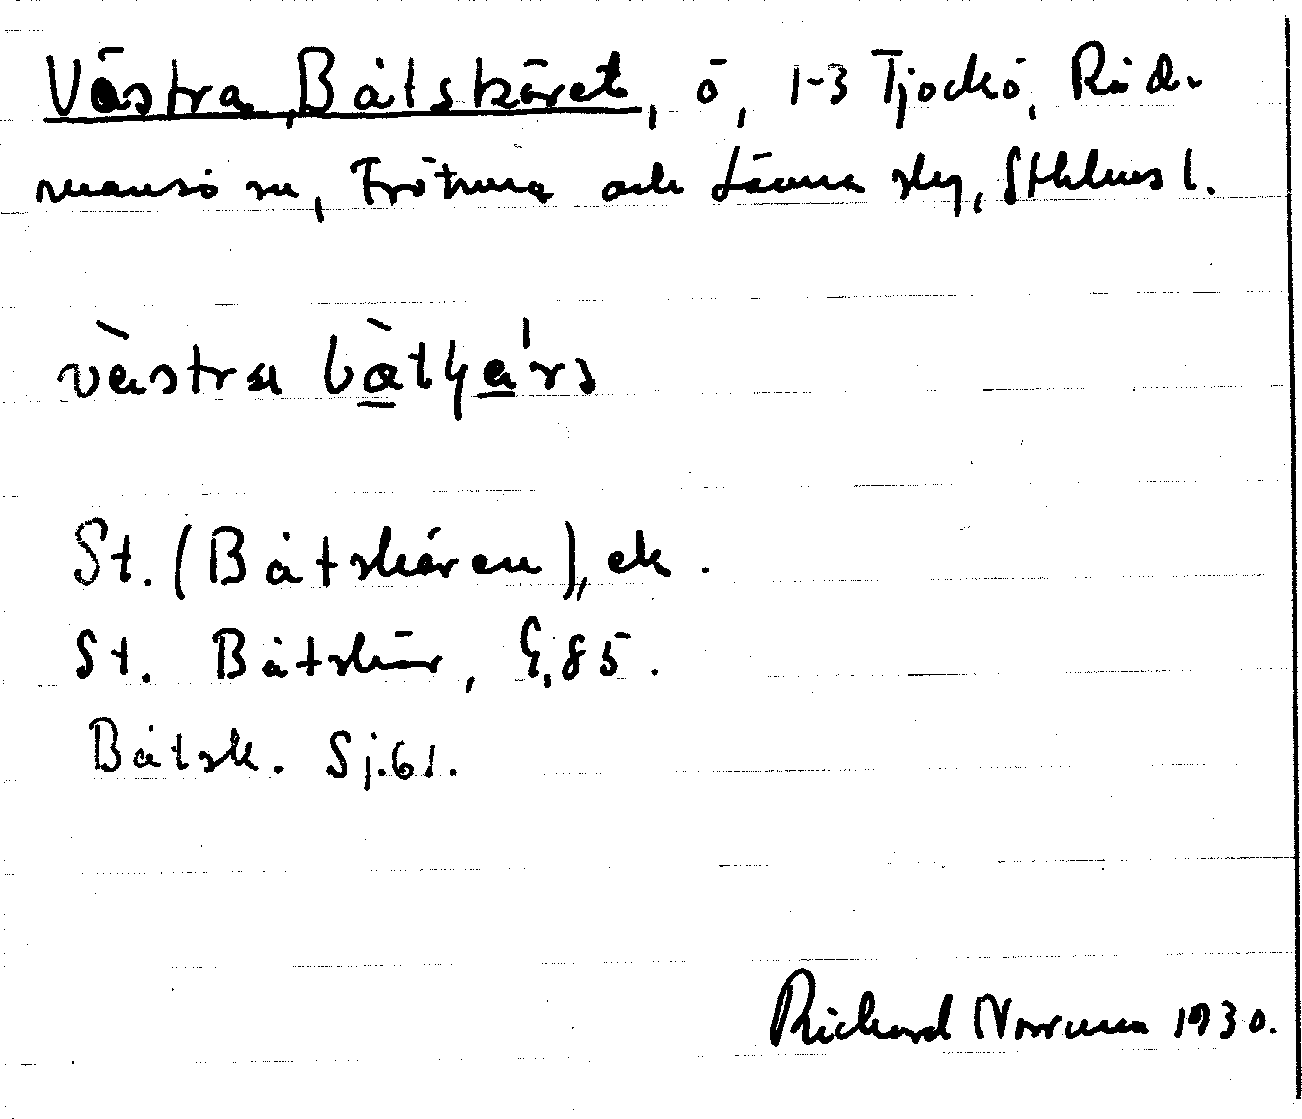 Västra Båtskäret, ö, 1-3 Tjockö, Råd-
mansö sn, Frötuna och Länna slg, Sthlms l.
västra båtʃjä'rs
St. (Båtskären), ek.
St. Båtskär, G. 85.
Båtsk. Sj. 61.
Richard Norrman 1930.